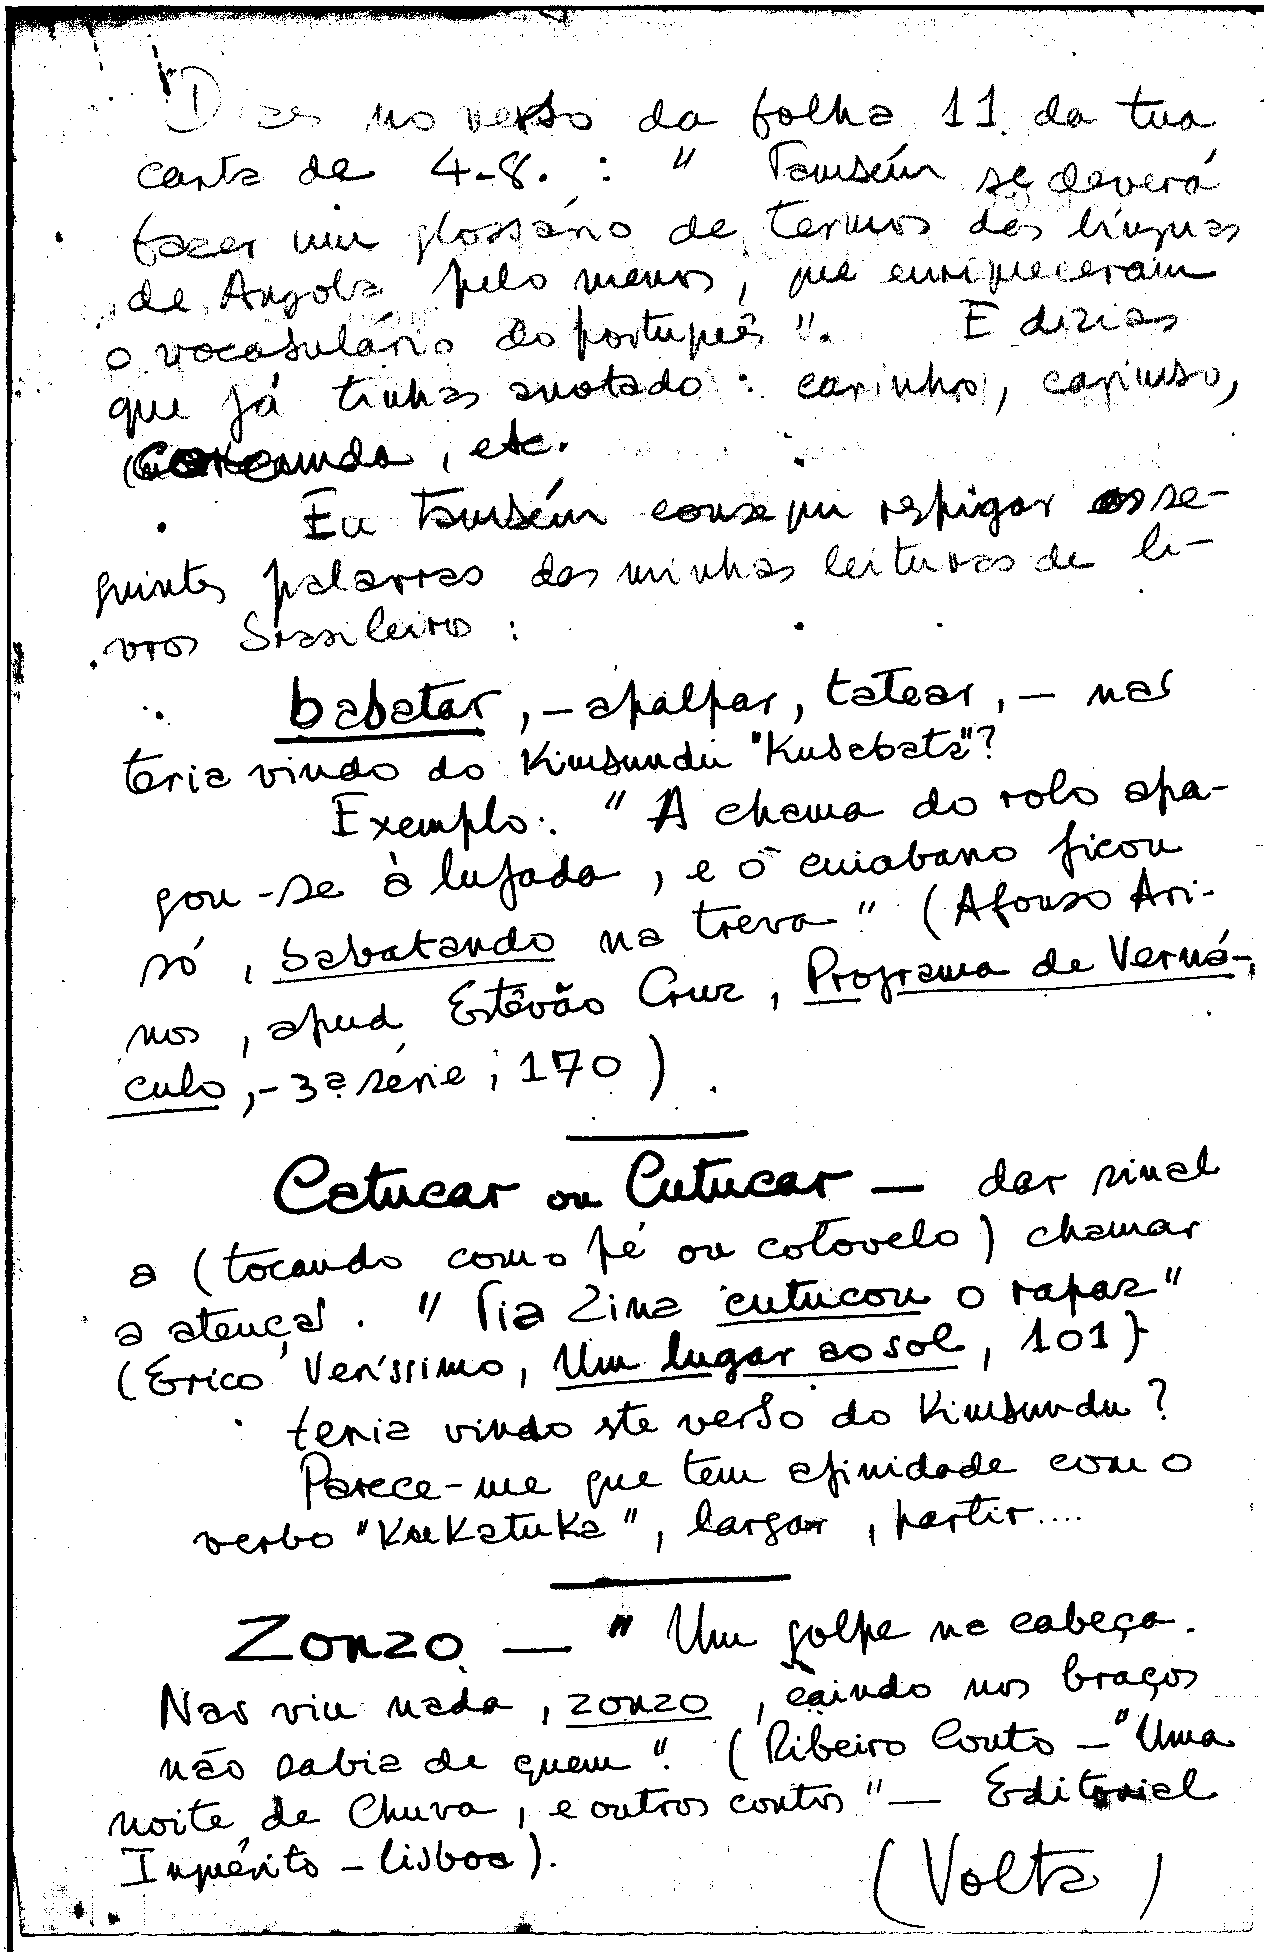 Dizes no verso da folha 11 da tua
carta de 4-8. : " Também se deverá
fazer um glossário de termos das línguas
de Angola pelo menos, que enriqueceram
o vocabulário do português ". E dizias
que já tinhas anotado : carinho, carimbo,
corcunda, etc.
Eu também consegui respigar os se-
guintes palavras das minhas leituras de li-
vros brasileiro :
babatar, - apalpar, tatear, - nas
teria vindo do Kimbundu "Kubabata"?
Exemplo : " A chama do rolo apa-
gou-se à lufada, e o cuiabano ficou
só, babatando na treva " (Afonso Ari-
nos, apud Estêvão Cruz, Programa de Verná-
culo, - 3ª série, 170)
Catucar ou Cutucar — dar sinal
a (tocando com o pé ou cotovelo) chamar
a atençaõ. " Tia Zina cutucou o rapaz "
(Erico Veríssimo, Um lugar ao sol, 101)
teria vindo ste verbo do Kimbundu ?
Parece-me que tem afinidade com o
verbo "Kukatuka", largar, partir....
Zonzo — " Um golpe na cabeça.
Nas viu nada, zonzo, caindo nos braços
não sabia de quem ". (Ribeiro Couto — "Uma
noite de Chuva, e outros contos " — Editorial
Inquérito - Lisboa).
(Volta)